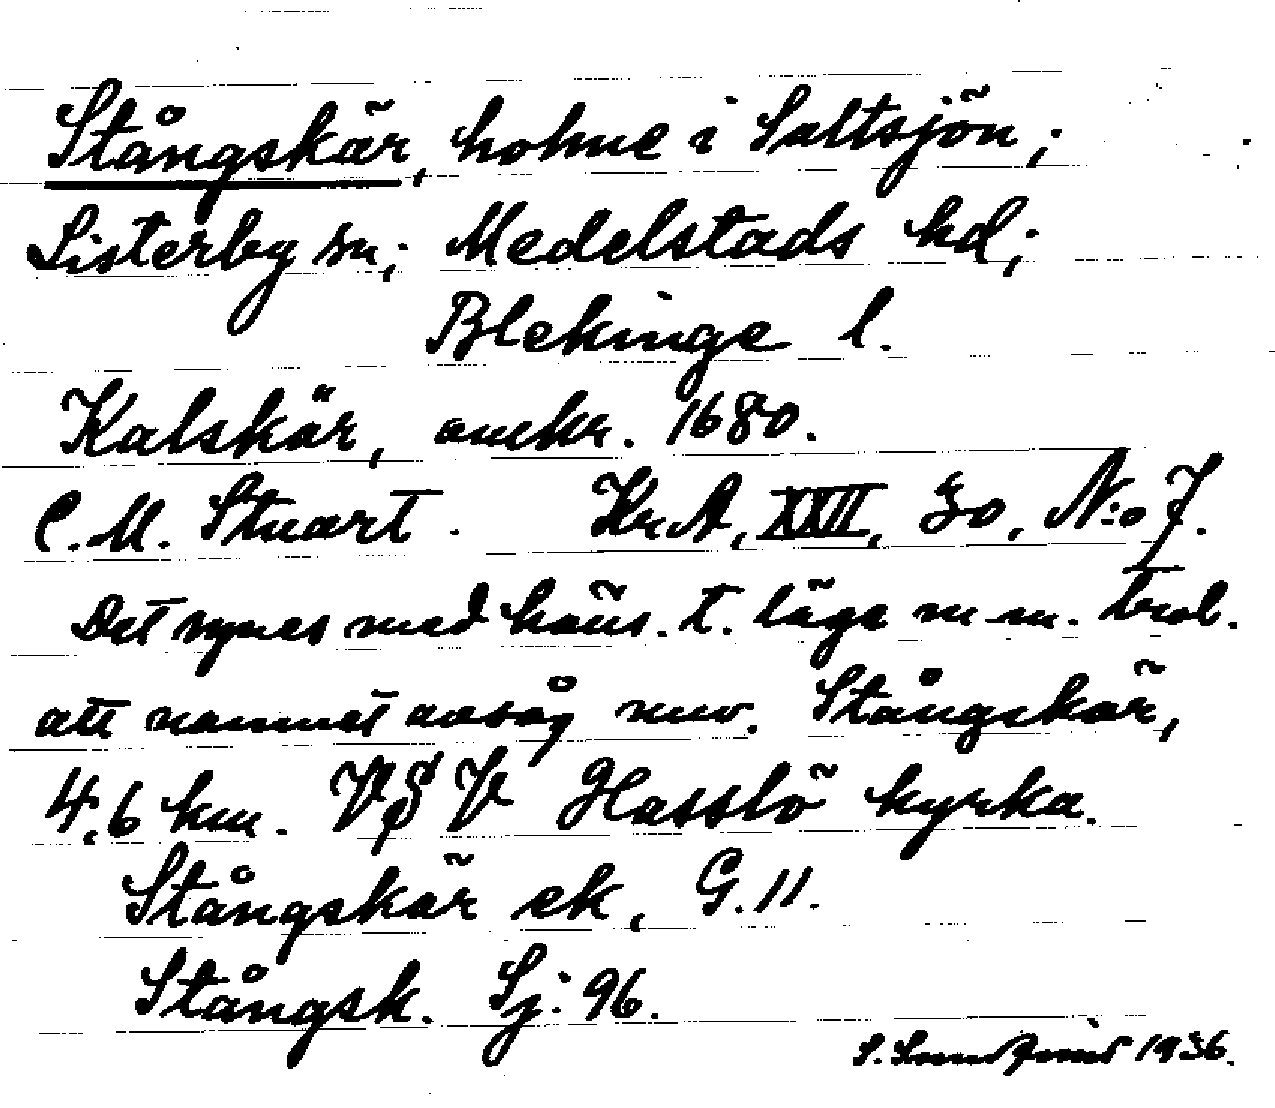 Stångskär, holme i Saltsjön;
Listerby sn; Medelstads hd;
Blekinge l.
Kalskär, omkr. 1680.
C. M. Stuart. Kr. A, XXII, 30, N:o 7.
Det synes med häns. t. läge m. m. trol.
att namnet avsåg nuv. Stångskär,
4,6 km. V§V Hasslö kyrka.
Stångskär ek, G. 11.
Stångsk. Sj: 96.
S. 1936.